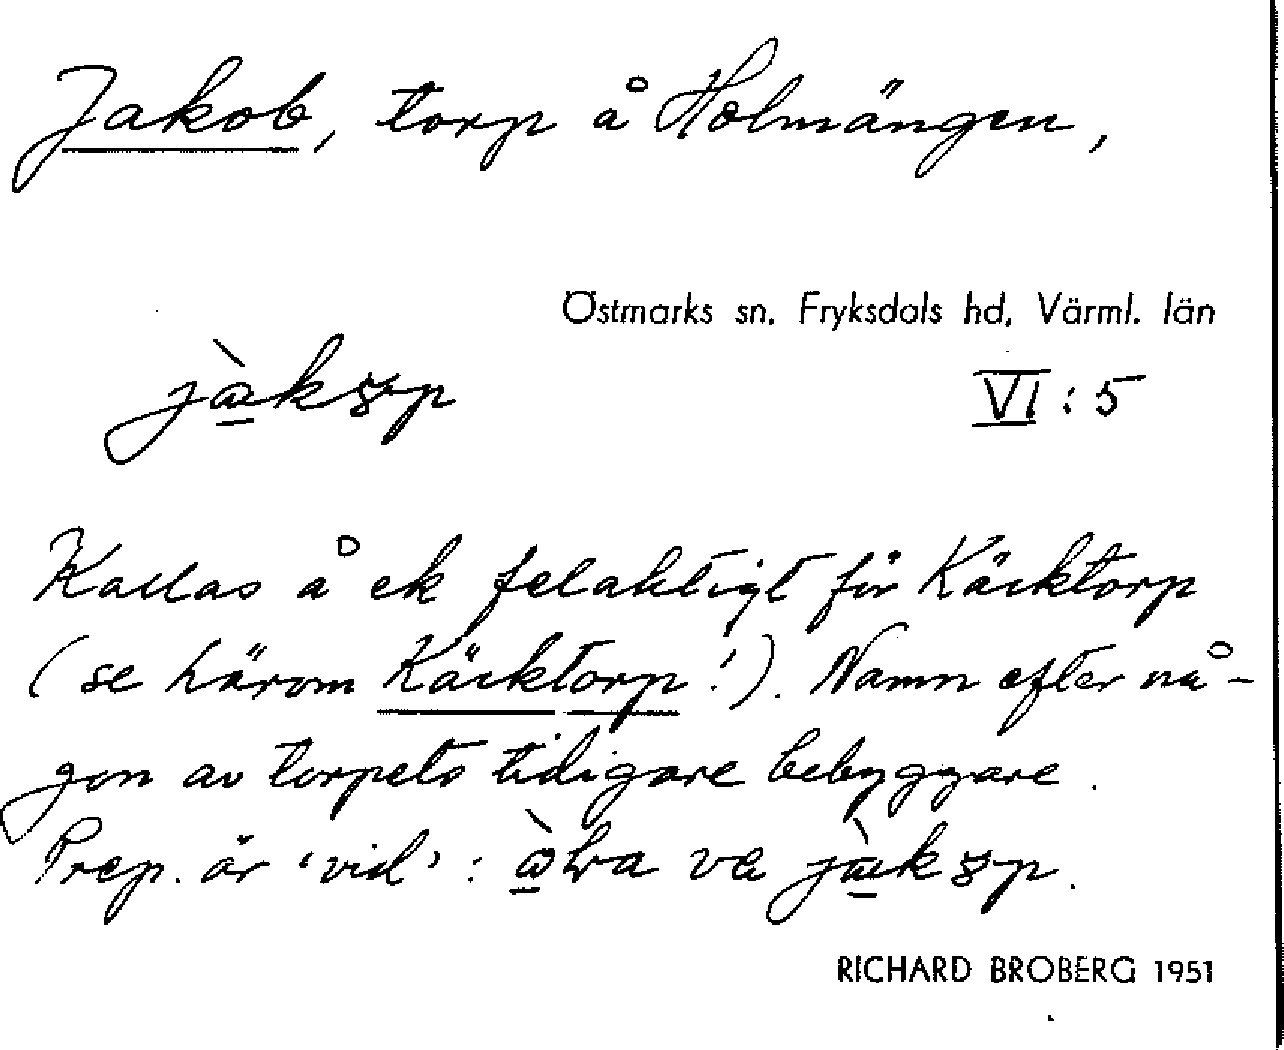 Jakob, torp å Holmängen,
Östmarks sn. Fryksdals hd, Värml. län
VI : 5
Kallas å ek felaktigt för Käcktorp
(se härom Käcktorp!). Namn efter nå-
gon av torpets tidigare bebyggare.
Prep. är 'vid' :
RICHARD BROBERG 1951